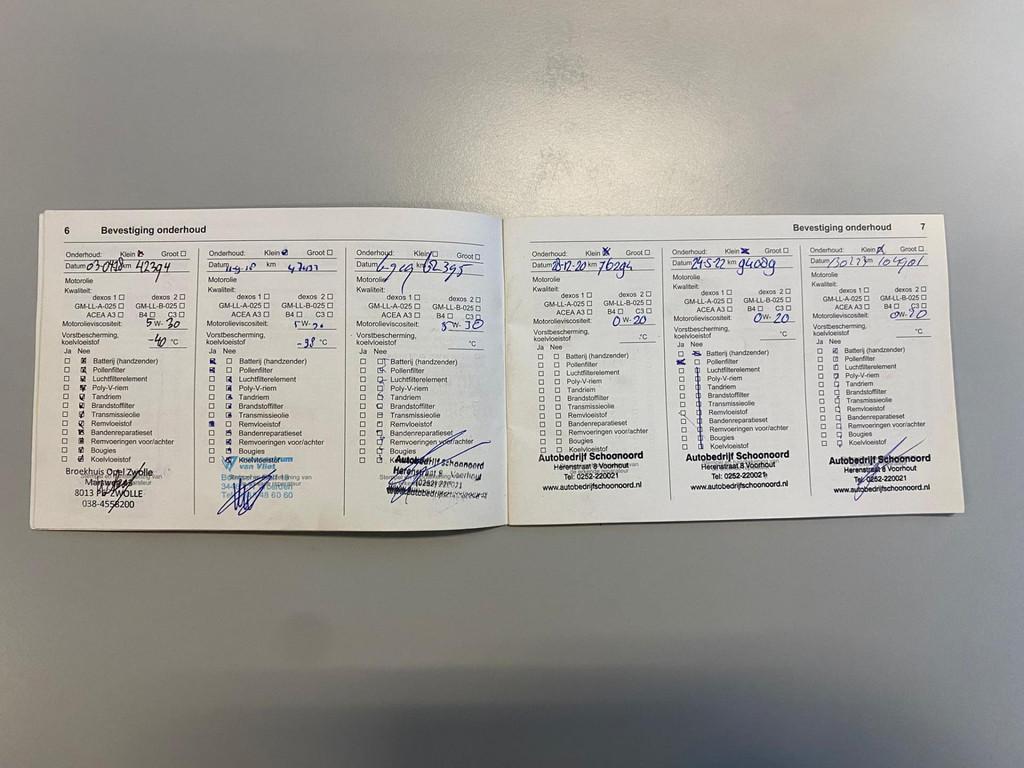 6 Bevestiging onderhoud
Onderhoud: Klein Groot
Datum 03-0418 km 42394
Motorolie
Kwaliteit:
dexos 1 dexos 2
GM-LL-A-025 GM-LL-B-025
ACEA A3 B4 C3
Motorolieviscositeit: 5 W- 30
Vorstbescherming,
koelvloeistof -40 °C
Ja Nee
Batterij (handzender)
Pollenfilter
Luchtfilterelement
Poly-V-riem
Tandriem
Brandstoffilter
Transmissieolie
Remvloeistof
Bandenreparatieset
Remvoeringen voor/achter
Bougies
Koelvloeistof
Broekhuis Opel Zwolle
8013 PE ZWOLLE
038-4558200
Onderhoud: Klein Groot
Datum km
Motorolie
Kwaliteit:
dexos 1 dexos 2
GM-LL-A-025 GM-LL-B-025
ACEA A3 B4 C3
Motorolieviscositeit: W-
Vorstbescherming,
koelvloeistof -38 °C
Ja Nee
Batterij (handzender)
Pollenfilter
Luchtfilterelement
Poly-V-riem
Tandriem
Brandstoffilter
Transmissieolie
Remvloeistof
Bandenreparatieset
Remvoeringen voor/achter
Bougies
Koelvloeistof
van Vliet
Onderhoud: Klein Groot
Datum km 62395
Motorolie
Kwaliteit:
dexos 1 dexos 2
GM-LL-A-025 GM-LL-B-025
ACEA A3 B4 C3
Motorolieviscositeit: 5 W- 30
Vorstbescherming,
koelvloeistof °C
Ja Nee
Batterij (handzender)
Pollenfilter
Luchtfilterelement
Poly-V-riem
Tandriem
Brandstoffilter
Transmissieolie
Remvloeistof
Bandenreparatieset
Remvoeringen voor/achter
Bougies
Autobedrijf Schoonoord
Herenstraat 8 Voorhout
0252-220021
www.autobedrijfschoonoord.nl
Bevestiging onderhoud 7
Onderhoud: Klein Groot
Datum 28-12-20 km 76294
Motorolie
Kwaliteit:
dexos 1 dexos 2
GM-LL-A-025 GM-LL-B-025
ACEA A3 B4 C3
Motorolieviscositeit: 0 W- 20
Vorstbescherming,
koelvloeistof °C
Ja Nee
Batterij (handzender)
Pollenfilter
Luchtfilterelement
Poly-V-riem
Tandriem
Brandstoffilter
Transmissieolie
Remvloeistof
Bandenreparatieset
Remvoeringen voor/achter
Bougies
Koelvloeistof
Autobedrijf Schoonoord
Herenstraat 8 Voorhout
Tel: 0252-220021
www.autobedrijfschoonoord.nl
Onderhoud: Klein Groot
Datum 24-5-22 km 94089
Motorolie
Kwaliteit:
dexos 1 dexos 2
GM-LL-A-025 GM-LL-B-025
ACEA A3 B4 C3
Motorolieviscositeit: 0 W- 20
Vorstbescherming,
koelvloeistof °C
Ja Nee
Batterij (handzender)
Pollenfilter
Luchtfilterelement
Poly-V-riem
Tandriem
Brandstoffilter
Transmissieolie
Remvloeistof
Bandenreparatieset
Remvoeringen voor/achter
Bougies
Koelvloeistof
Autobedrijf Schoonoord
Herenstraat 8 Voorhout
Tel: 0252-220021
www.autobedrijfschoonoord.nl
Onderhoud: Klein Groot
Datum km 104901
Motorolie
Kwaliteit:
dexos 1 dexos 2
GM-LL-A-025 GM-LL-B-025
ACEA A3 B4 C3
Motorolieviscositeit: 0W-20
Vorstbescherming,
koelvloeistof °C
Ja Nee
Batterij (handzender)
Pollenfilter
Luchtfilterelement
Poly-V-riem
Tandriem
Brandstoffilter
Transmissieolie
Remvloeistof
Bandenreparatieset
Remvoeringen voor/achter
Bougies
Koelvloeistof
Autobedrijf Schoonoord
Herenstraat 8 Voorhout
Tel: 0252-220021
www.autobedrijfschoonoord.nl